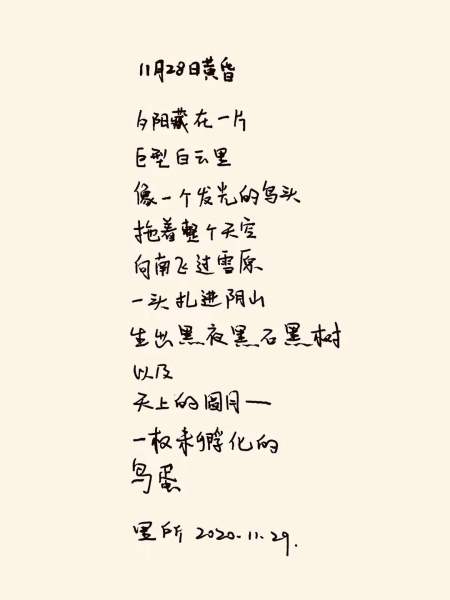 11月28日黄昏
夕阳藏在一片
巨型白云里
像一个发光的鸟头
拖着整个天空
向南飞过雪原
一头扎进阴山
生出黑夜黑石黑树
以及
天上的圆月——
一枚未孵化的
鸟蛋
里所 2020.11.29.